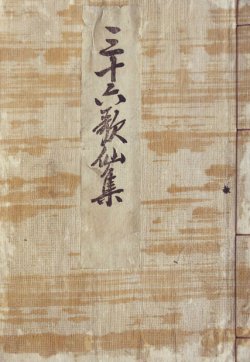 三十六歌仙集